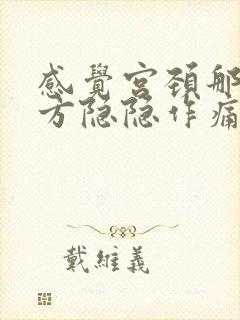 感覺宮頚那
方隐隐作痛
戴維義